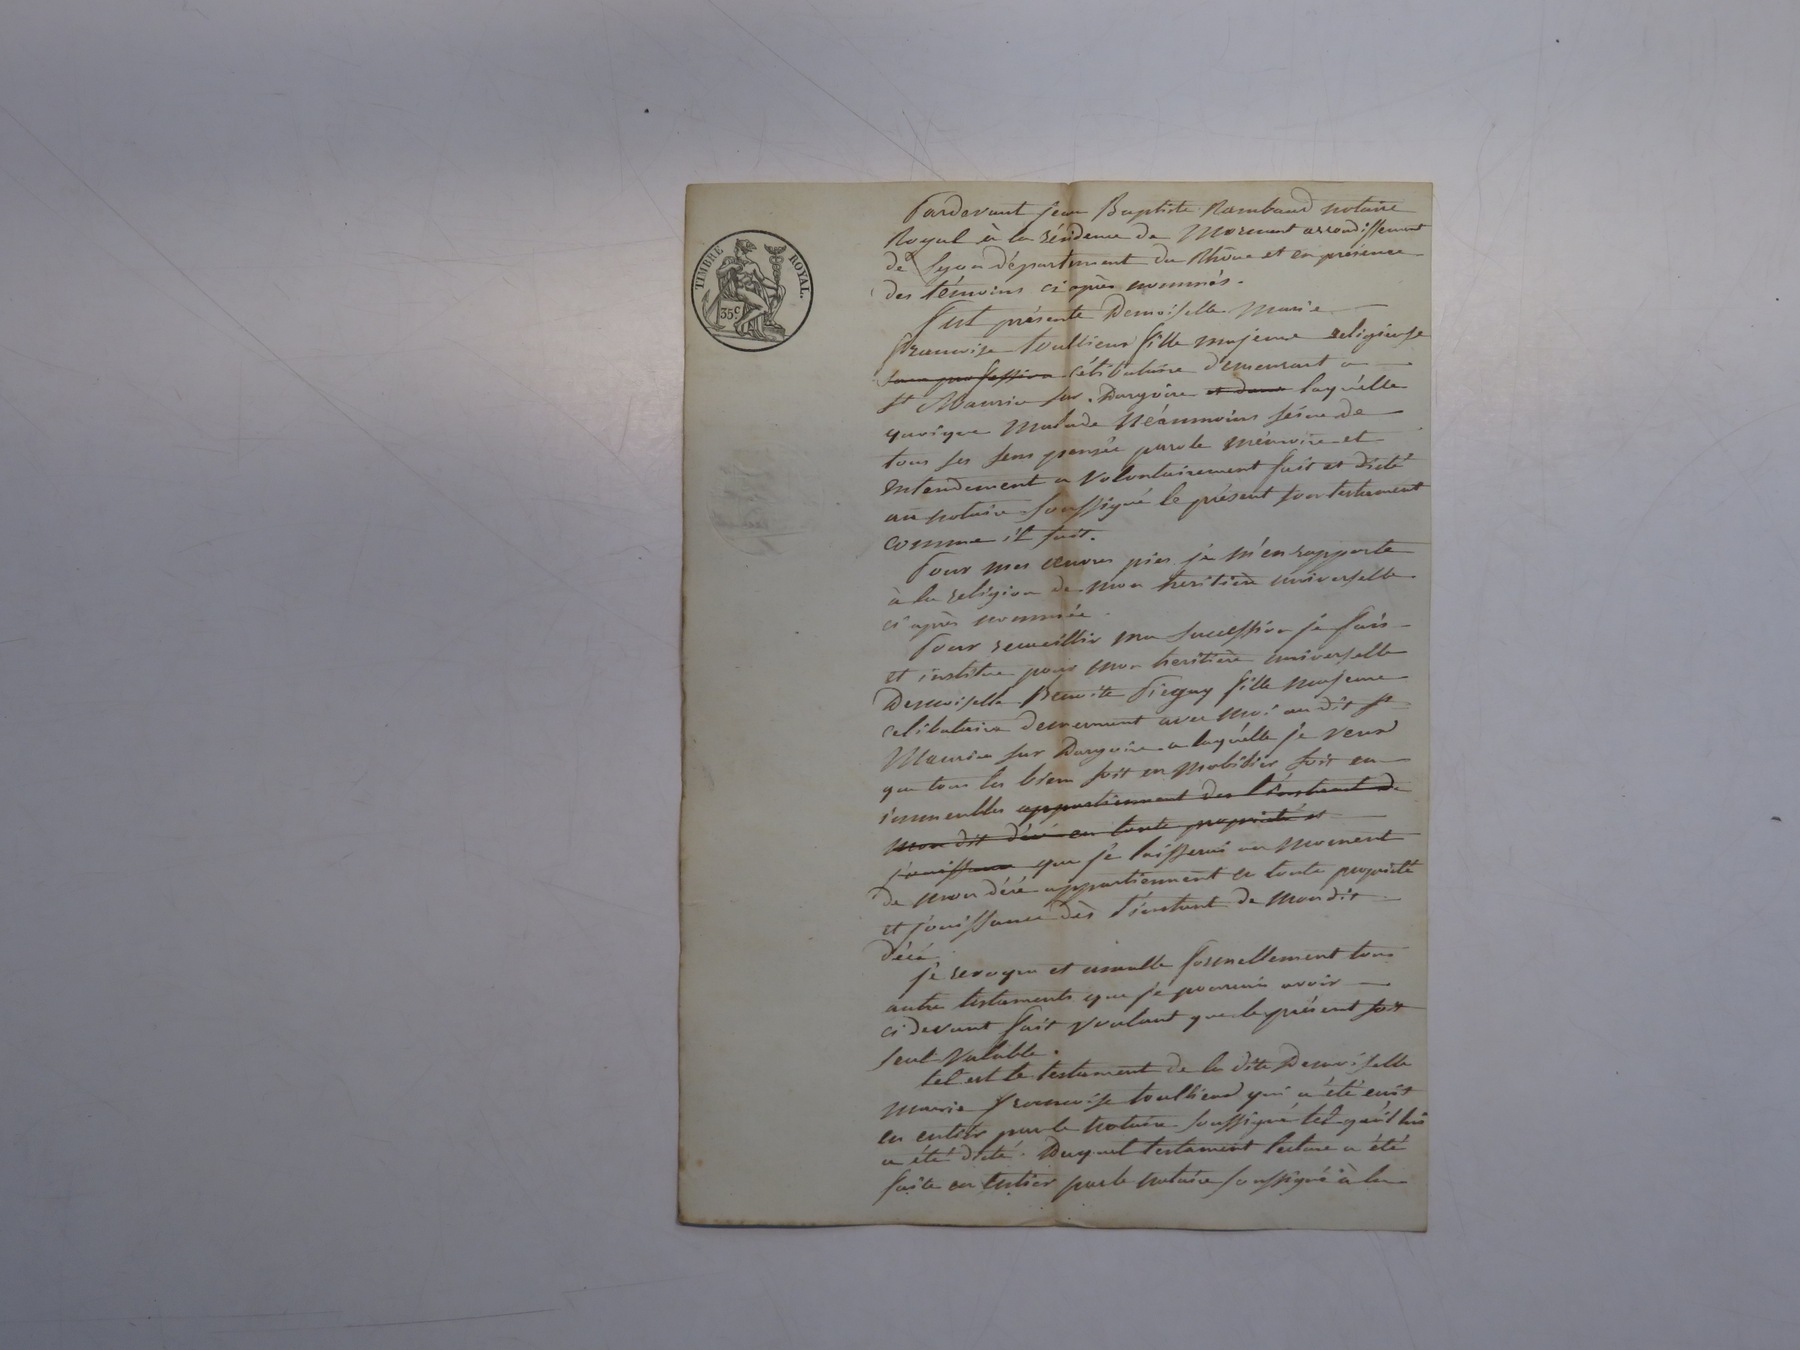 TIMBRE ROYAL.
35c
Pardevant Jean Baptiste Rambaud notaire
Royal à la résidence de Mornant arrondissement
de Lyon département du Rhône et en présence
des témoins ci après nommés.
S'est présente Demoiselle Marie
françoise toullieux fille majeure religieuse
sans profession célibataire demeurant a
St Maurice sur Dargoire et dans laquélle
quoique Malade Néanmoins séine de
tous ses sens pensée parole mémoire et
entendement a Volontairement fait et dicté
au notaire soussigné le présent son testament
comme il suit.
Pour mes œuvres pies je m'en rapporte
à la religion de mon heritière universelle
ci après nommée
Pour recueillir ma succession je fais
et institue pour mon heritière universelle
Demoiselle Benoite fille majeure
celibataire demeurant avec moi au dit St
Maurice sur Dargoire a laquélle je veux
que tous les biens soit en mobilier soit en
immeubles appartiennent dès l'instant de
mon dit décé en toute propriété et
jouissance que je laisserai au moment
de mon décé appartiennent en toute propriété
et jouissance dès l'instant de mondit
décé.
je revoque et annulle formellement tous
autre testaments que je pourrais avoir
ci devant fait voulant que le présent soit
seul valable.
tel est le testament de la dite Demoiselle
Marie françoise toullieux qui a été écrit
en entier par le notaire soussigné tel qu'il lui
a été dicté. Duquel testament lecture a été
faite en entier par le notaire soussigné à la